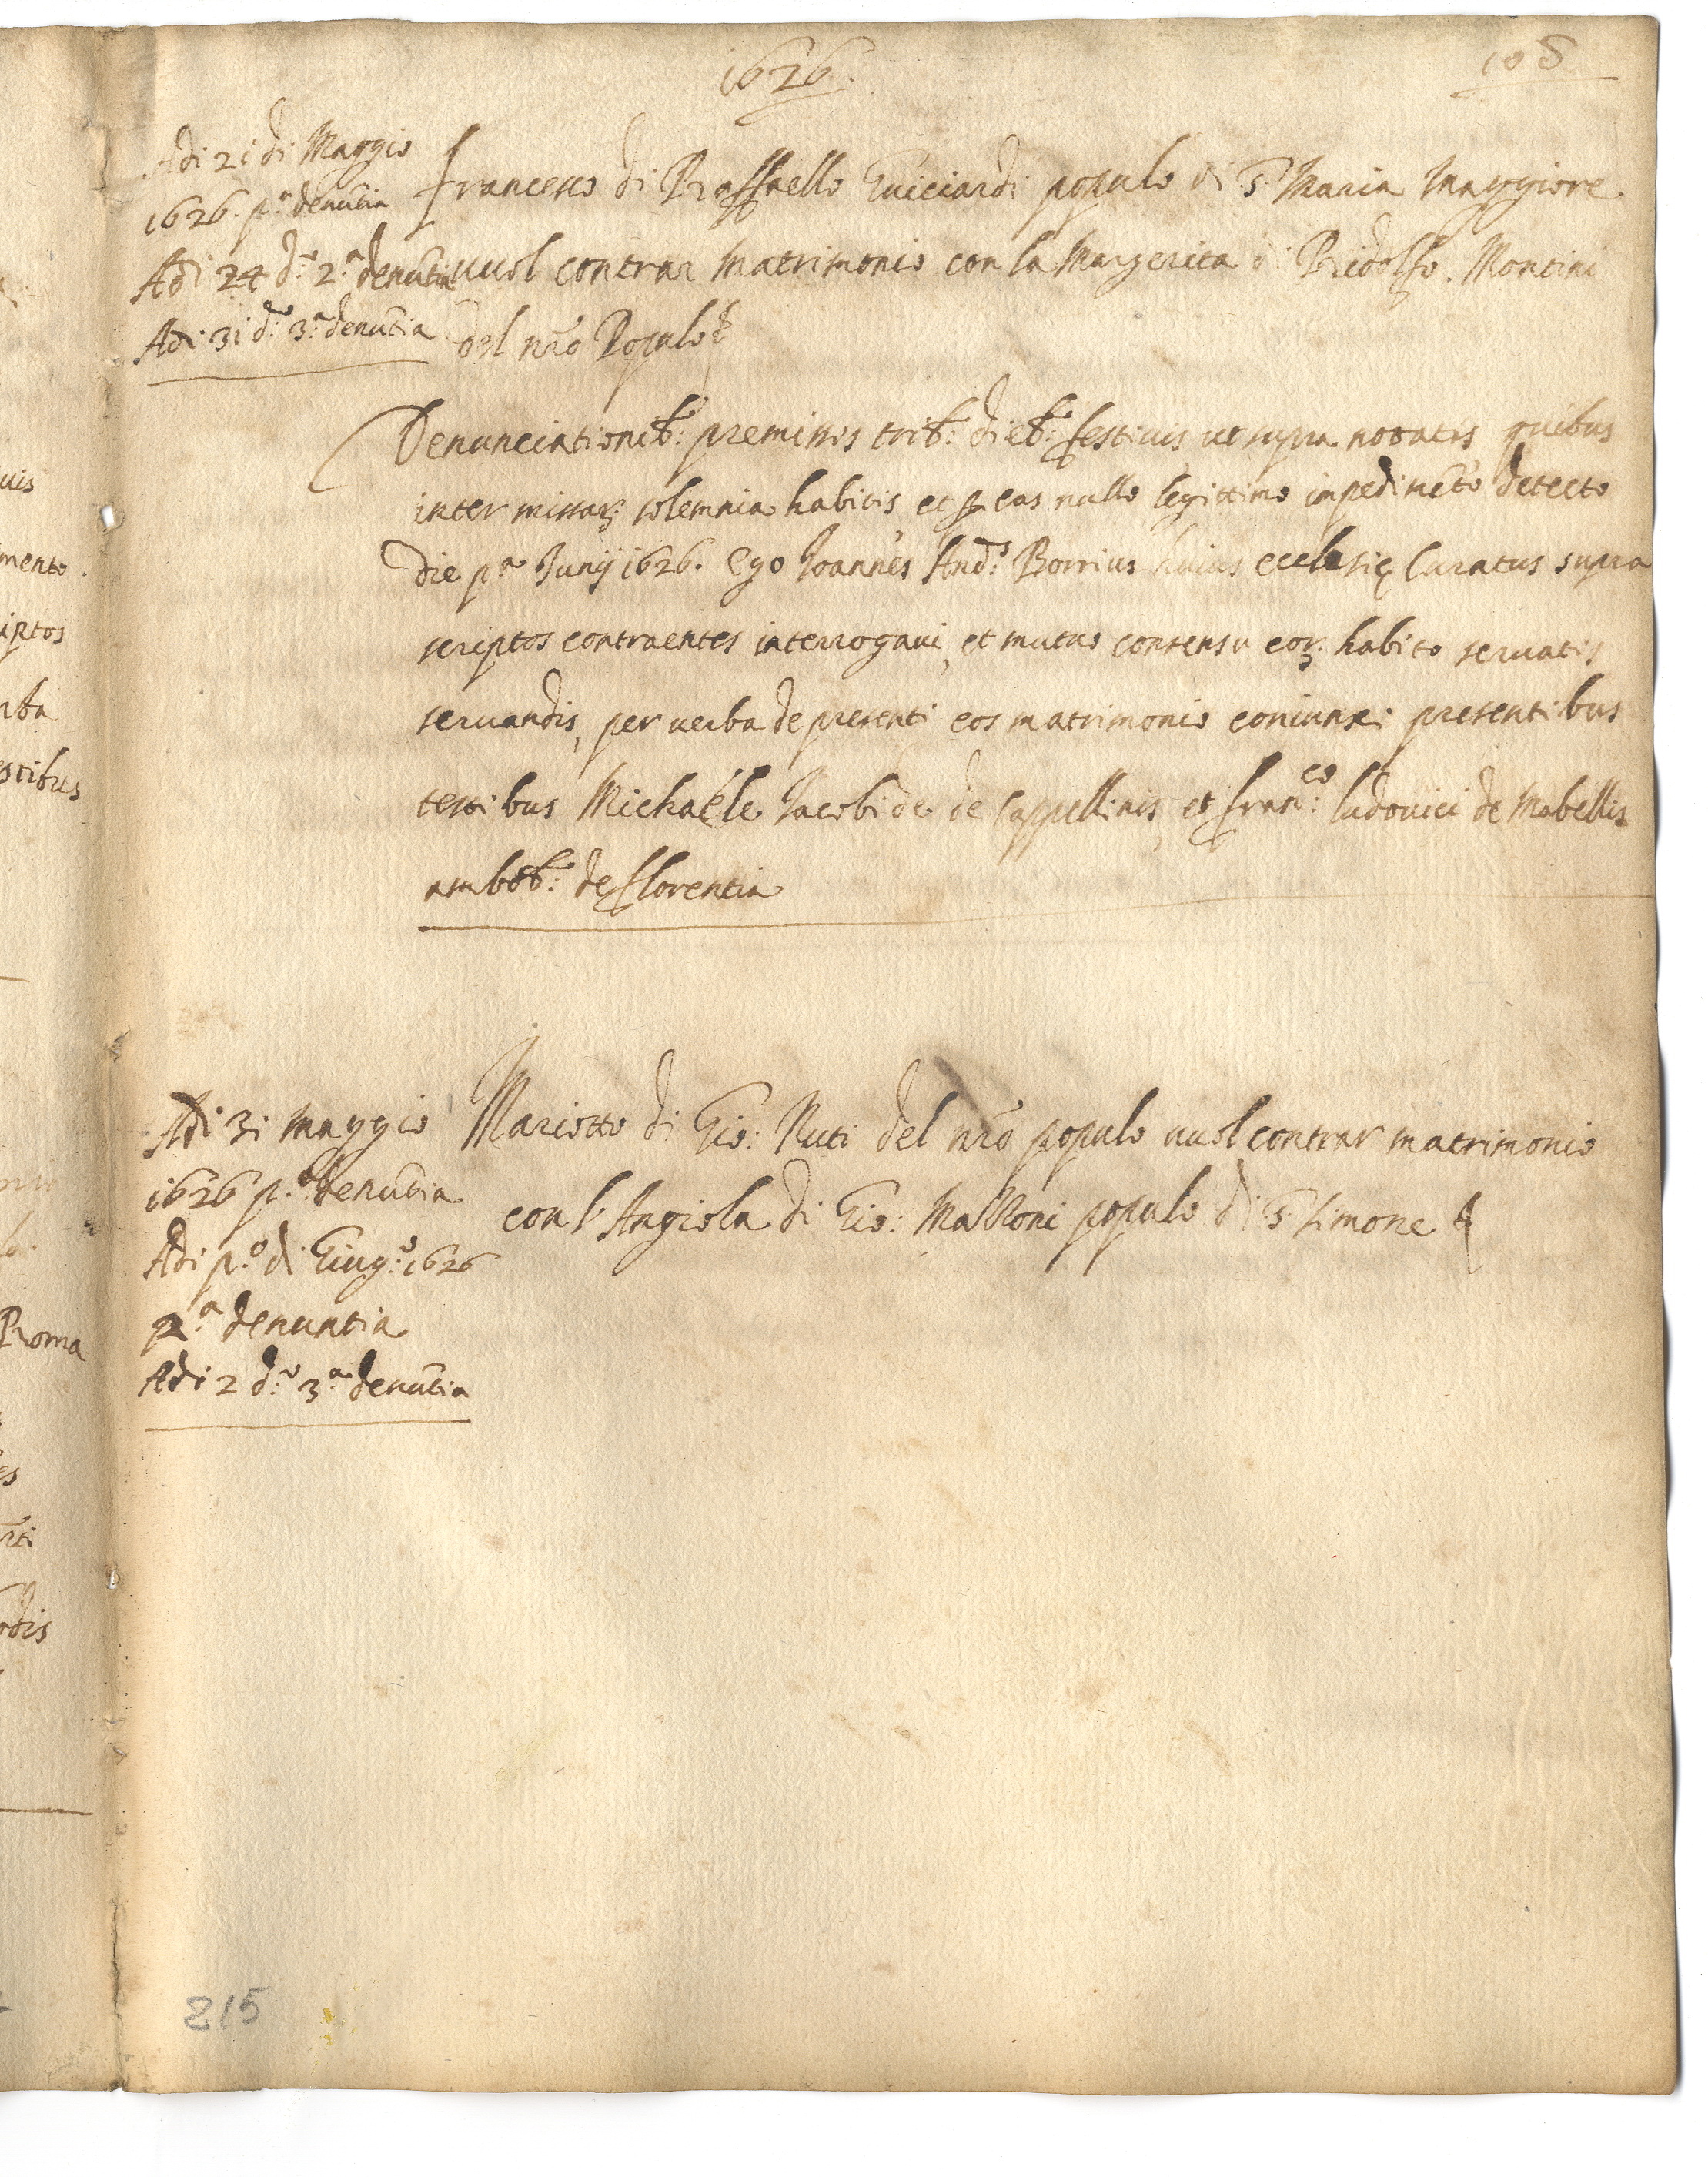 1626.
108
Adi 21 di Maggio
1626. p.ª denũtia
Adi 24 d.º 2.ª denũtia
Adi 31 d.º 3.ª denũtia
Francesco di Raffaello Guiciardi populo di S. Maria Maggiore
vuol contrar Matrimonio con la Margerita di Ridolfo Montini
del nr̃o Populo
Denunciationib.: premissis trib.: dieb.: festivis ut supra notatis quibus
inter missar. solemnia habitis et p eas nullo legittimo impedimẽto detecto
die p.ª Junij 1626. Ego Joannes And.s Borrius huius ecclesię Curatus supra
scriptos contraentes interrogavi, et mutuo consensu eor. habito servatis
servandis, per verba de presenti eos matrimonio coniunxi presentibus
testibus Michaéle Jacobi de de Cappellinis, et Fran.co Ludovici de Mabellis
ambob.: de Florentia
Adi 31 Maggio
1626 p.ª denũtia
Adi p.º di Giug.º 1626
2.ª denuntia
Adi 2 d.º 3.ª denũtia
Mariotto di Gio: Nuti del nr̃o populo vuol contrar matrimonio
con l'Angiola di Gio: populo di S. Simone
uis
mento.
iptos
stibus
Roma
es
ndis
215